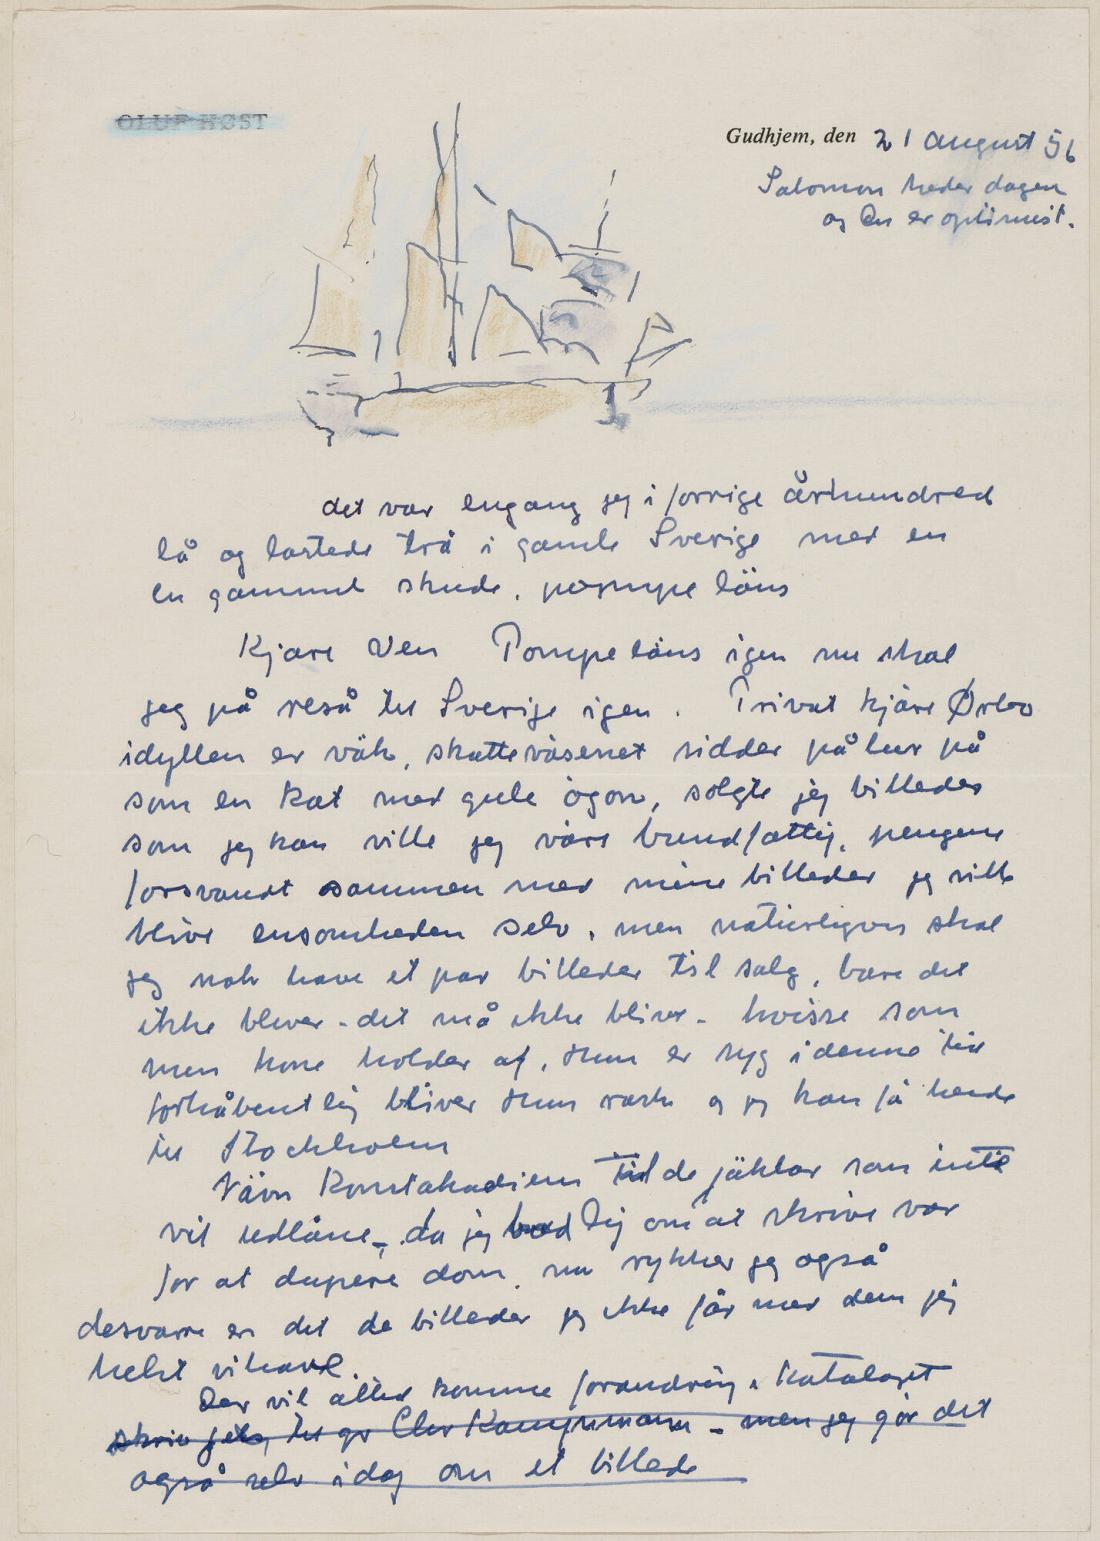 OLUF HØST
Gudhjem, den 21 august 56
Salomon heder dagen
og Du er optimist.
det var engang jeg i forrige århundred
lå og lastede trä i gamle Sverige med en
en gammel skude, pompe läns
Kjäre Ven Pompe läns igen nu skal
jeg på reså til Sverige igen. Privat kjäre Ørbo
idyllen er väk, skattevåsenet sidder på lur på
som en Kat med gule ögon, solgte jeg billeder
som jeg kan ville jeg väre bundfattig, pengene
forsvandt sammen med mine billeder jeg vilde
blive ensomheden selv, men naturligvis skal
jeg nok have et par billeder til salg, bare det
ikke bliver - det må ikke bliver - hvisse som
men kone holder af, Hun er syg i denne tid
forhåbentlig bliver Hun rask og jeg kan få hende
til Stockholm
Nävn Konstakadiem til de jäklar som inte
vil udlåne, da jeg bad Dig om at skrive var
for at dupere dom, nu rykker jeg også
desvärre er det de billeder jeg ikke får med dem jeg
helst vil have.
Der vil aller komme forandring i Kataloget
skriv til gr Clev Kampmann - men jeg gör det
også selv idag om et billede